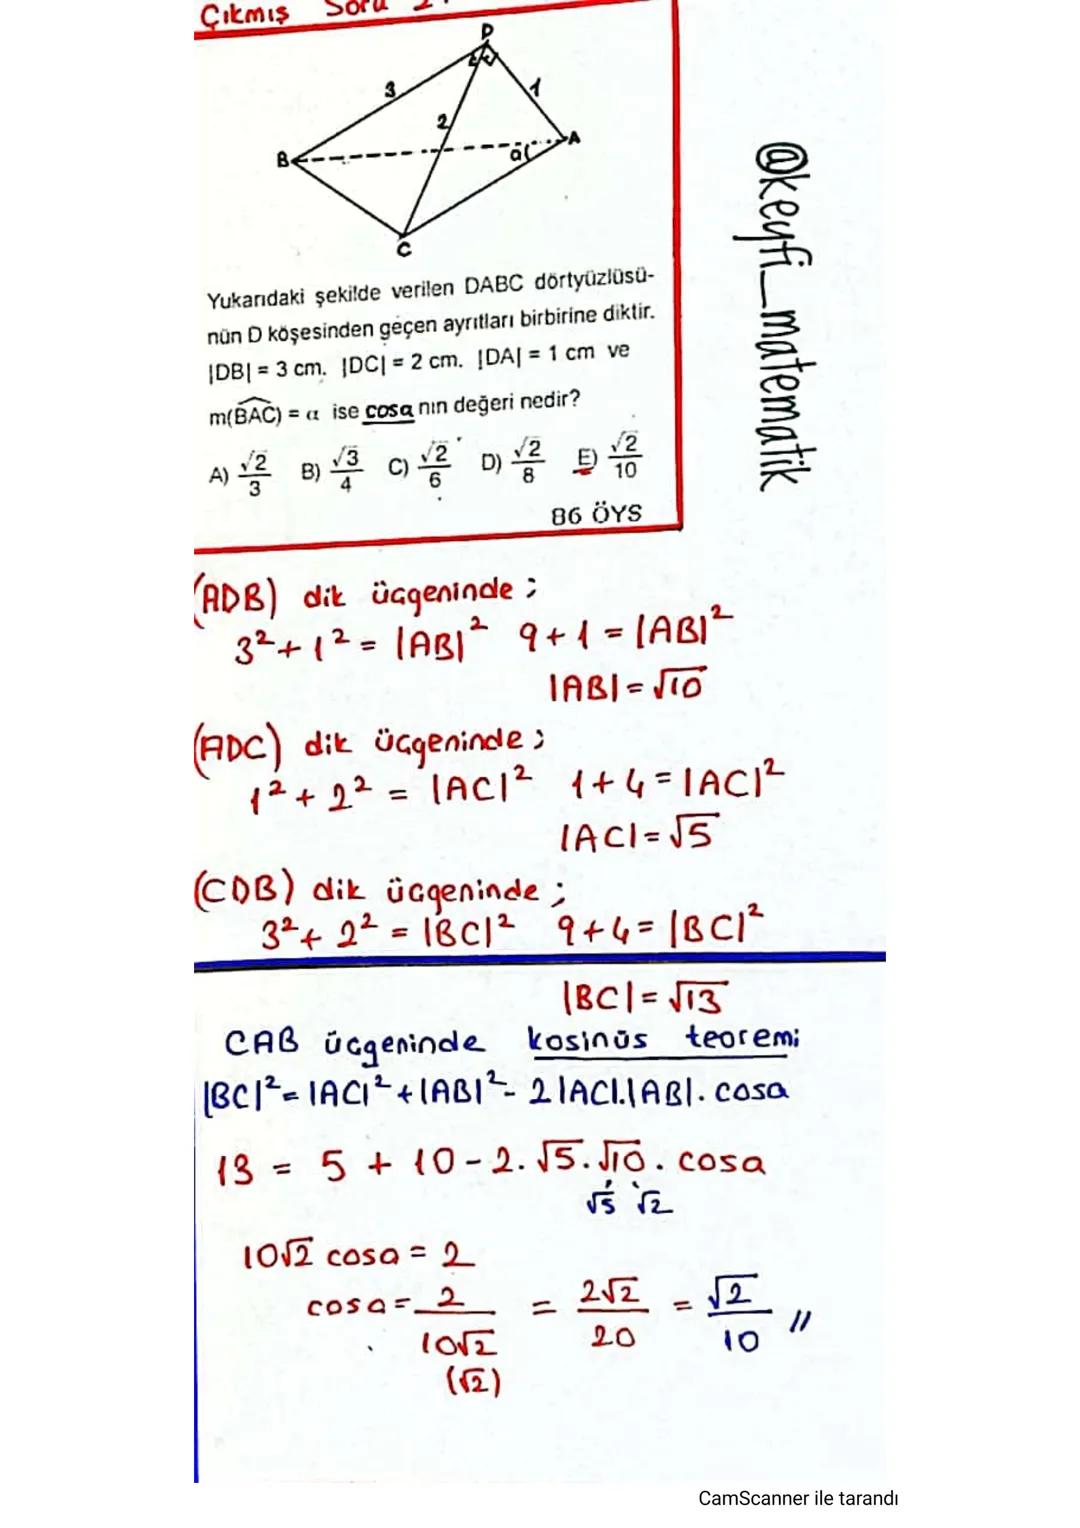 Çıkmış Soru 2.
D
3
1
2
B
A
α
C
Yukarıdaki şekilde verilen DABC dörtyüzlüsü-
nün D köşesinden geçen ayrıtları birbirine diktir.
|DB| = 3 cm. |DC| = 2 cm. |DA| = 1 cm ve
m(BAC) = α ise cosα nın değeri nedir?
A) √2/3 B) √3/4 C) √2/6 D) √2/8 E) √2/10
86 ÖYS
@keyfi_matematik
(ADB) dik üçgeninde ;
3² + 1² = |AB|² 9+1 = |AB|²
|AB| = √10
(ADC) dik üçgeninde ;
1² + 2² = |AC|² 1+4 = |AC|²
|AC| = √5
(CDB) dik üçgeninde ;
3² + 2² = |BC|² 9+4 = |BC|²
|BC| = √13
CAB üçgeninde kosinüs teoremi
|BC|² = |AC|² + |AB|² - 2|AC|.|AB|. cosα
13 = 5 + 10 - 2. √5. √10. cosα
√5 √2
10√2 cosα = 2
cosα = 2/10√2 = 2√2/20 = √2/10 //
(√2)
CamScanner ile tarandı